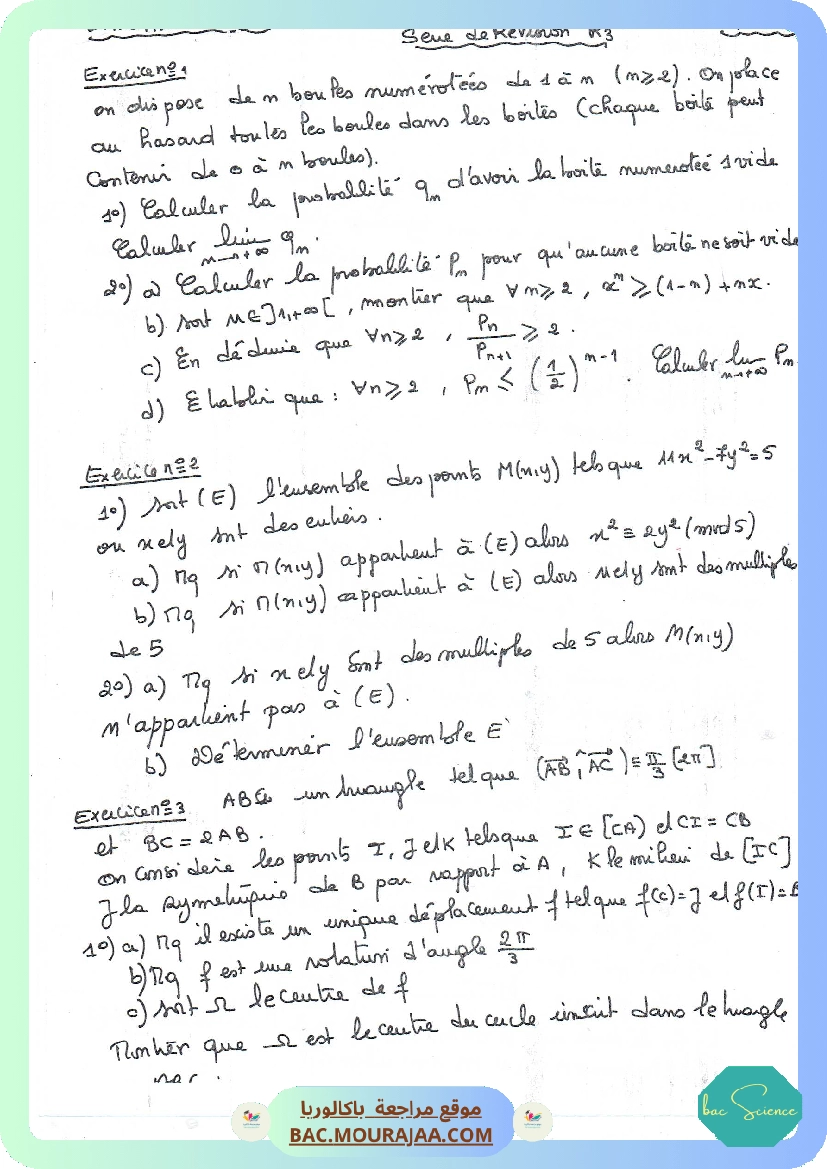 Serie de Revision n°3
Exercice n°1
on dispose de n boules numérotées de 1 à n (n≥2). On place
au hasard toutes les boules dans les boites (chaque boite peut
contenir de 0 à n boules).
1°) Calculer la probabilité qₙ d'avoir la boite numerotée 1 vide
Calculer lim qₙ.
n→+∞
2°) a) Calculer la probabilité Pₙ pour qu'aucune boite ne soit vide
b) soit x∈]1,+∞[, montrer que ∀n≥2, xⁿ ≥ (1-n)+nx.
c) En déduire que ∀n≥2, Pₙ/Pₙ₊₁ ≥ 2.
d) Etablir que : ∀n≥2, Pₙ ≤ (1/2)ⁿ⁻¹. Calculer lim Pₙ
n→+∞
Exercice n°2
1°) soit (E) l'ensemble des points M(x,y) tels que 11x²-7y²=5
ou x et y sont des entiers.
a) Mq si M(x,y) appartient à (E) alors x² ≡ 2y² (mod 5)
b) Mq si M(x,y) appartient à (E) alors x et y sont des multiples
de 5
2°) a) Mq si x et y sont des multiples de 5 alors M(x,y)
n'appartient pas à (E).
b) Déterminer l'ensemble E
Exercice n°3 ABC un triangle tel que (AB, AC) ≡ π/3 [2π]
et BC = 2AB.
On considère les points I, J et K tels que I ∈ [CA) et CI = CB
J la symétrique de B par rapport à A, K le milieu de [IC]
1°) a) Mq il existe un unique déplacement f tel que f(C)=J et f(I)=B
b) Mq f est une rotation d'angle 2π/3
c) soit Ω le centre de f
Montrer que Ω est le centre du cercle inscrit dans le triangle
موقع مراجعة باكالوريا
BAC.MOURAJAA.COM
bac Science